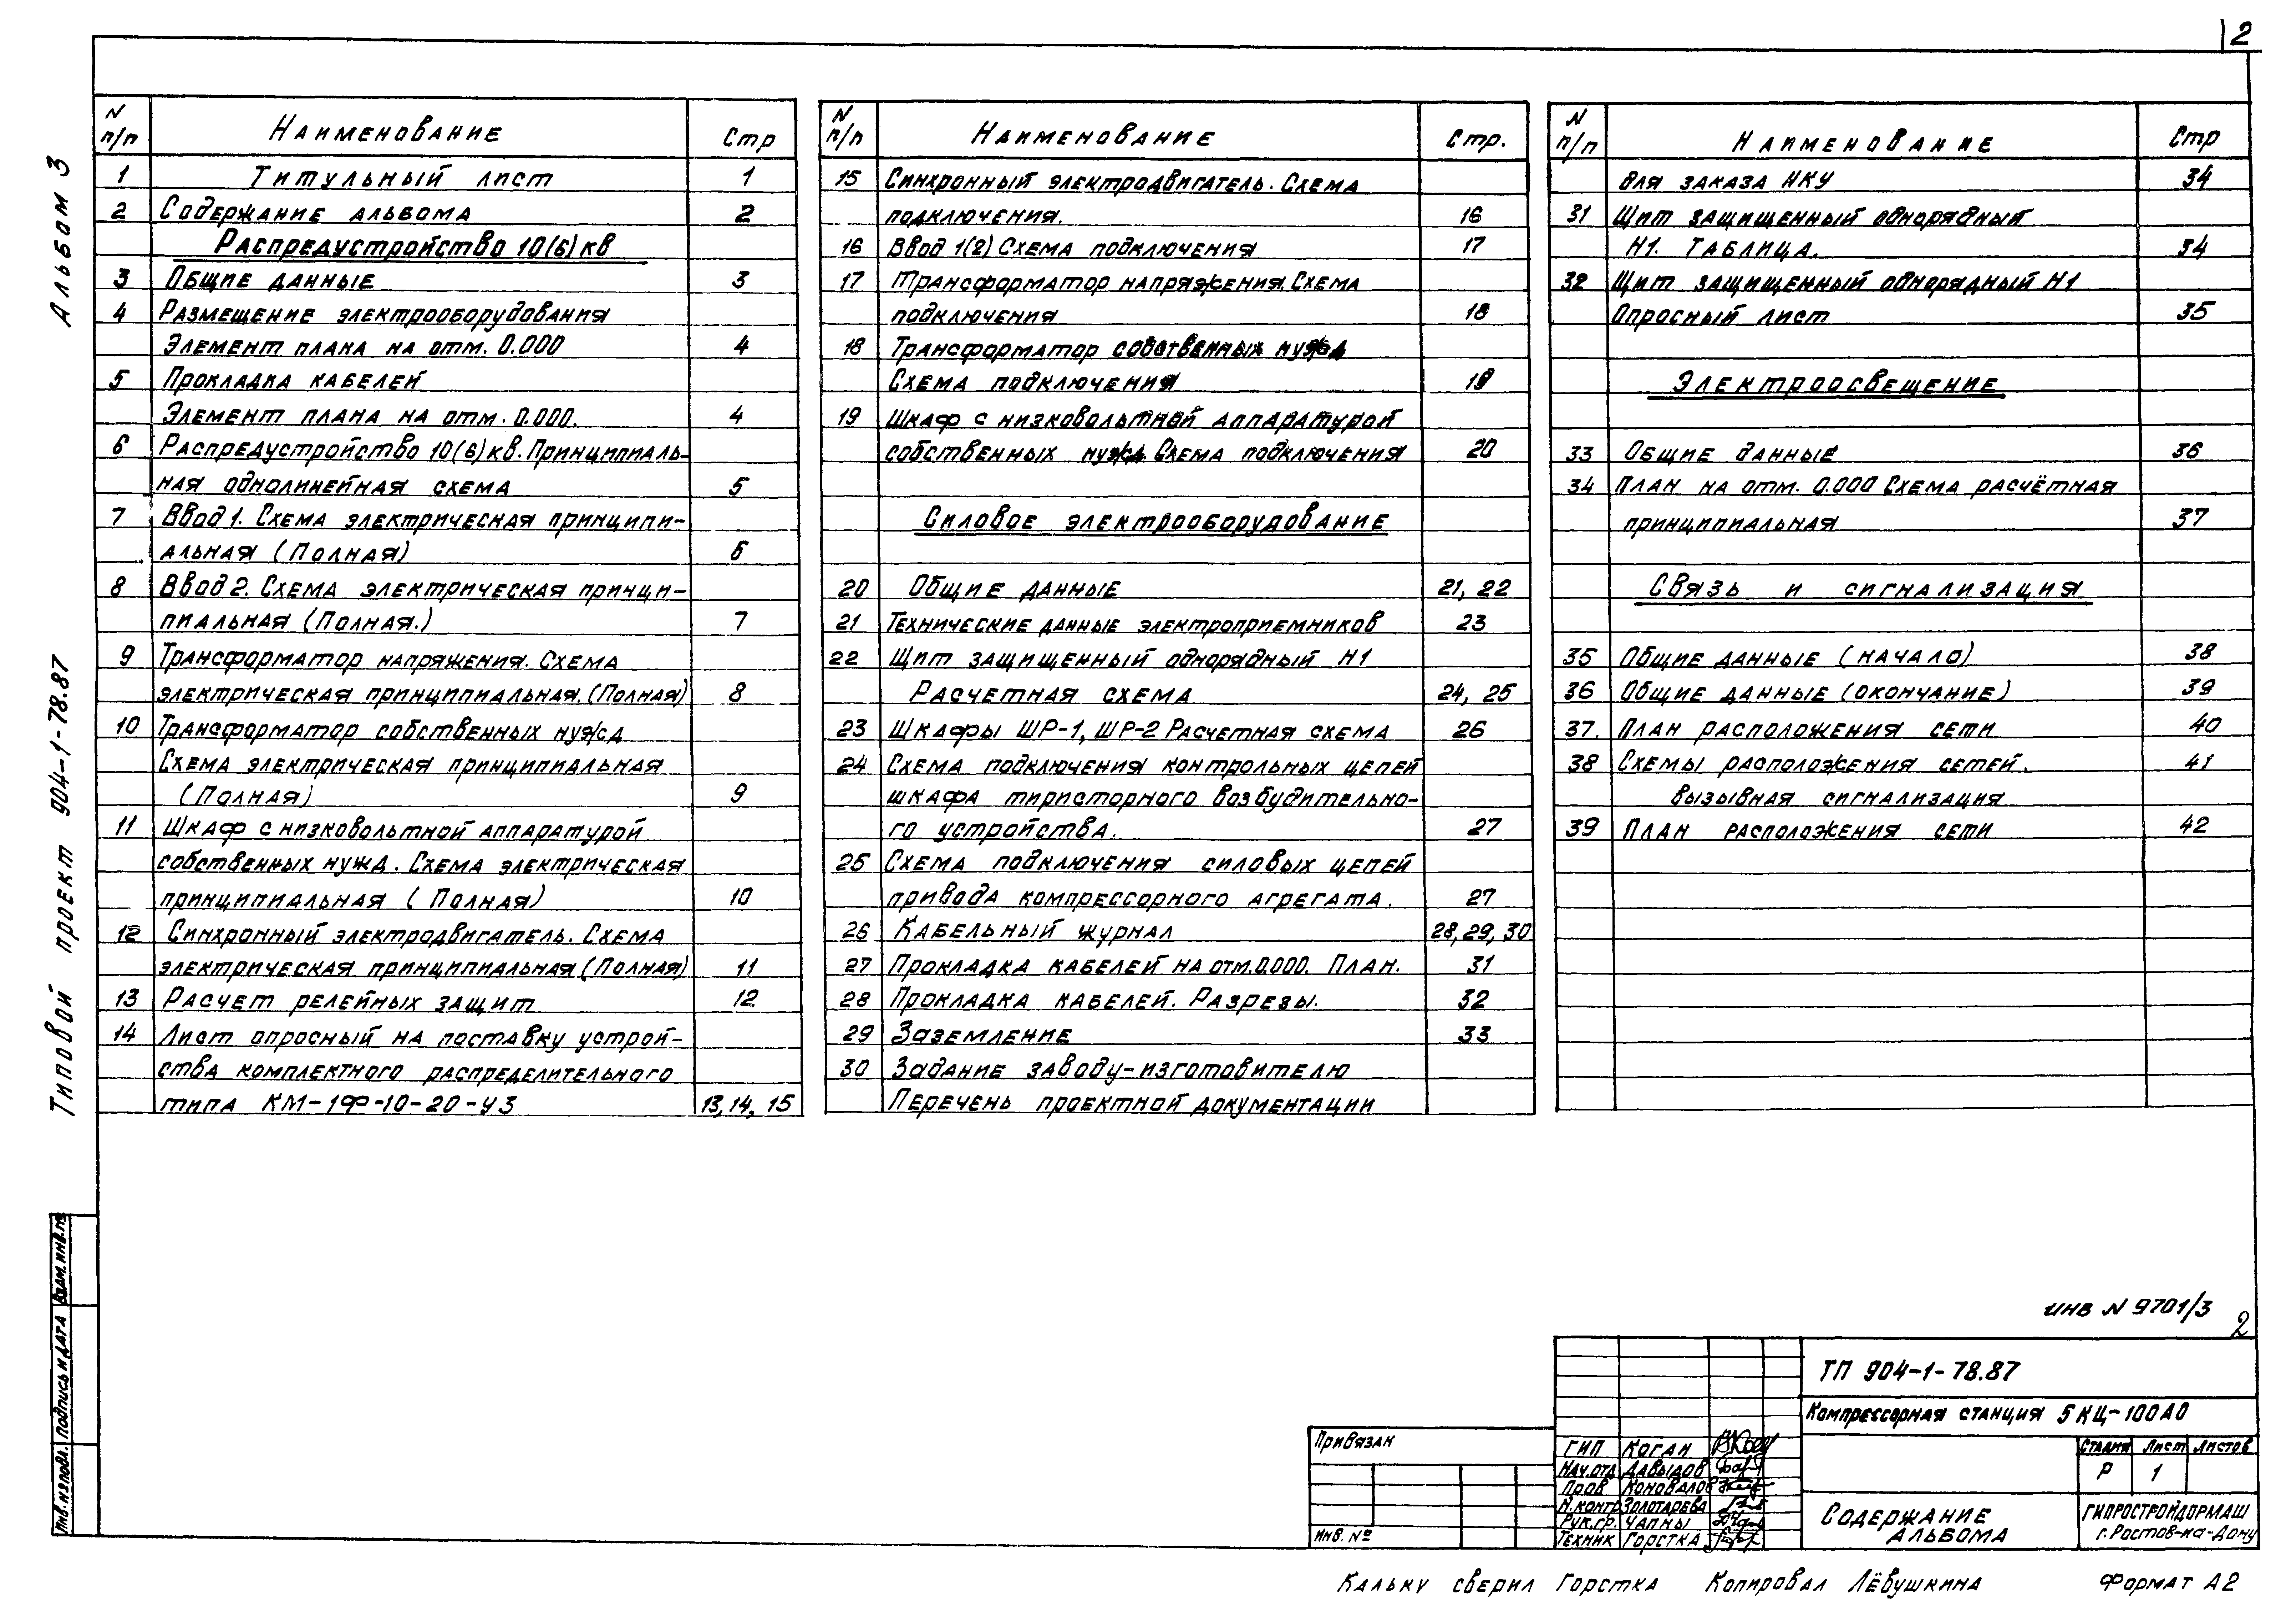 2
Альбом 3
Типовой проект 904-1-78.87
N п/п Наименование Стр
1 Титульный лист 1
2 Содержание альбома 2
Распредустройство 10(6) кв
3 Общие данные 3
4 Размещение электрооборудования
Элемент плана на отм. 0.000 4
5 Прокладка кабелей
Элемент плана на отм. 0.000. 4
6 Распредустройство 10(6) кв. Принципиаль-
ная однолинейная схема 5
7 Ввод 1. Схема электрическая принципи-
альная (Полная) 6
8 Ввод 2. Схема электрическая принци-
пиальная (Полная.) 7
9 Трансформатор напряжения. Схема
электрическая принципиальная. (Полная) 8
10 Трансформатор собственных нужд
Схема электрическая принципиальная
(Полная) 9
11 Шкаф с низковольтной аппаратурой
собственных нужд. Схема электрическая
принципиальная (Полная) 10
12 Синхронный электродвигатель. Схема
электрическая принципиальная (Полная) 11
13 Расчет релейных защит 12
14 Лист опросный на поставку устрой-
ства комплектного распределительного
типа КМ-1Ф-10-20-У3 13, 14, 15
N п/п Наименование Стр.
15 Синхронный электродвигатель. Схема
подключения. 16
16 Ввод 1(2) Схема подключения 17
17 Трансформатор напряжения. Схема
подключения 18
18 Трансформатор собственных нужд
Схема подключения 19
19 Шкаф с низковольтной аппаратурой
собственных нужд. Схема подключения 20
Силовое электрооборудование
20 Общие данные 21, 22
21 Технические данные электроприемников 23
22 Щит защищенный однорядный Н1
Расчетная схема 24, 25
23 Шкафы ШР-1, ШР-2 Расчетная схема 26
24 Схема подключения контрольных цепей
шкафа тиристорного возбудительно-
го устройства. 27
25 Схема подключения силовых цепей
привода компрессорного агрегата. 27
26 Кабельный журнал 28, 29, 30
27 Прокладка кабелей на отм. 0.000. План. 31
28 Прокладка кабелей. Разрезы. 32
29 Заземление 33
30 Задание заводу-изготовителю
Перечень проектной документации
N п/п Наименование Стр
для заказа НКУ 34
31 Щит защищенный однорядный
Н1. Таблица. 34
32 Щит защищенный однорядный Н1
Опросный лист 35
Электроосвещение
33 Общие данные 36
34 План на отм. 0.000 Схема расчётная
принципиальная 37
Связь и сигнализация
35 Общие данные (начало) 38
36 Общие данные (окончание) 39
37. План расположения сети 40
38 Схемы расположения сетей. 41
вызывная сигнализация
39 План расположения сети 42
Взам. инв. №
Подпись и дата
Инв. № подл.
инв N 9701/3
2
ТП 904-1-78.87
Компрессорная станция 5 КЦ-100А0
Привязан
Инв. №
ГИП Коган
Нач. отд Давыдов
Пров Коновалов
Н. контр Золотарева
Рук. гр. Чапны
Техник Горстка
Стадия Лист Листов
Р 1
Содержание
альбома
ГИПРОСТРОЙДОРМАШ
г. Ростов-на-Дону
Кальку сверил Горстка Копировал Лёвушкина Формат А2